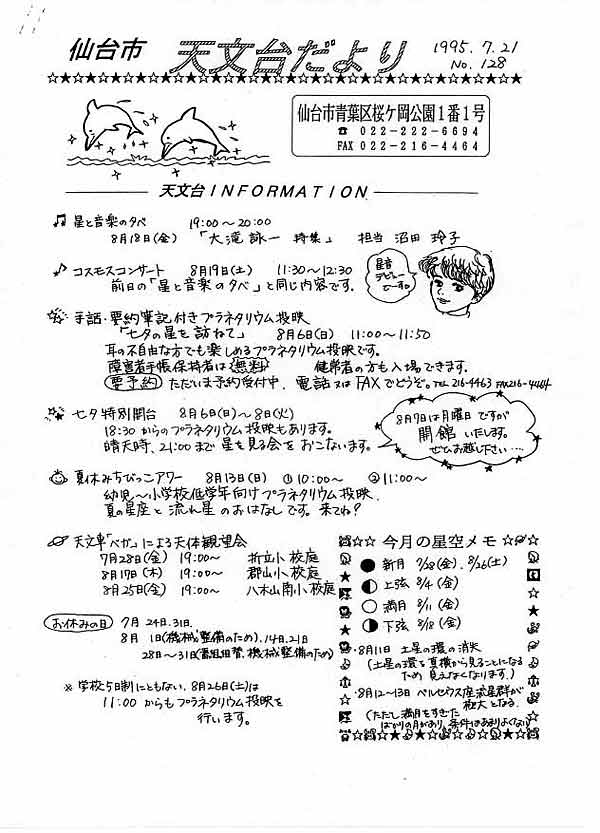 仙台市 天文台だより 1995.7.21
No.128
仙台市青葉区桜ケ岡公園1番1号
☎ 022-222-6694
FAX 022-216-4464
天文台INFORMATION
星と音楽の夕べ 19:00〜20:00
8月18日(金) 「大滝詠一 特集」 担当 沼田 玲子
コスモスコンサート 8月19日(土) 11:30〜12:30
前日の「星と音楽の夕べ」と同じ内容です.
星音
デビュー
でーす。
手話・要約筆記付きプラネタリウム投映
「七夕の星を訪ねて」 8月6日(日) 11:00〜11:50
耳の不自由な方でも楽しめるプラネタリウム投映です。
障害者手帳保持者は無料 健常者の方も入場できます。
要予約 ただいま予約受付中. 電話又はFAXでどうぞ。TEL 216-4463 FAX216-4464
七夕特別開台 8月6日(日)〜8日(火)
18:30からのプラネタリウム投映もあります。
晴天時、21:00まで星を見る会をおこないます。
8月7日は月曜日ですが
開館いたします。
ぜひお越し下さい…
夏休みちびっこアワー 8月13日(日) ①10:00〜 ②11:00〜
幼児〜小学校低学年向けプラネタリウム投映.
夏の星座と流れ星のおはなしです。来てね?
天文車「ベガ」による天体観望会
7月28日(金) 19:00〜 折立小校庭
8月17日(木) 19:00〜 郡山小校庭
8月25日(金) 19:00〜 八木山南小校庭
お休みの日 7月 24日.31日.
8月 1日(機械整備のため).14日.21日
28日〜31日(番組替、機械整備のため)
※ 学校5日制にともない、8月26日(土)は
11:00からもプラネタリウム投映を
行います。
今月の星空メモ
新月 7/28(金). 8/26(土)
上弦 8/4(金)
満月 8/11(金)
下弦 8/18(金)
・8月11日 土星の環の消失
(土星の環を真横から見ることになる
ため 見えなくなります.)
・8月12〜13日 ペルセウス座流星群が
極大となる.
(ただし満月をすぎた
ばかりの月があり、条件はあまりよくない)